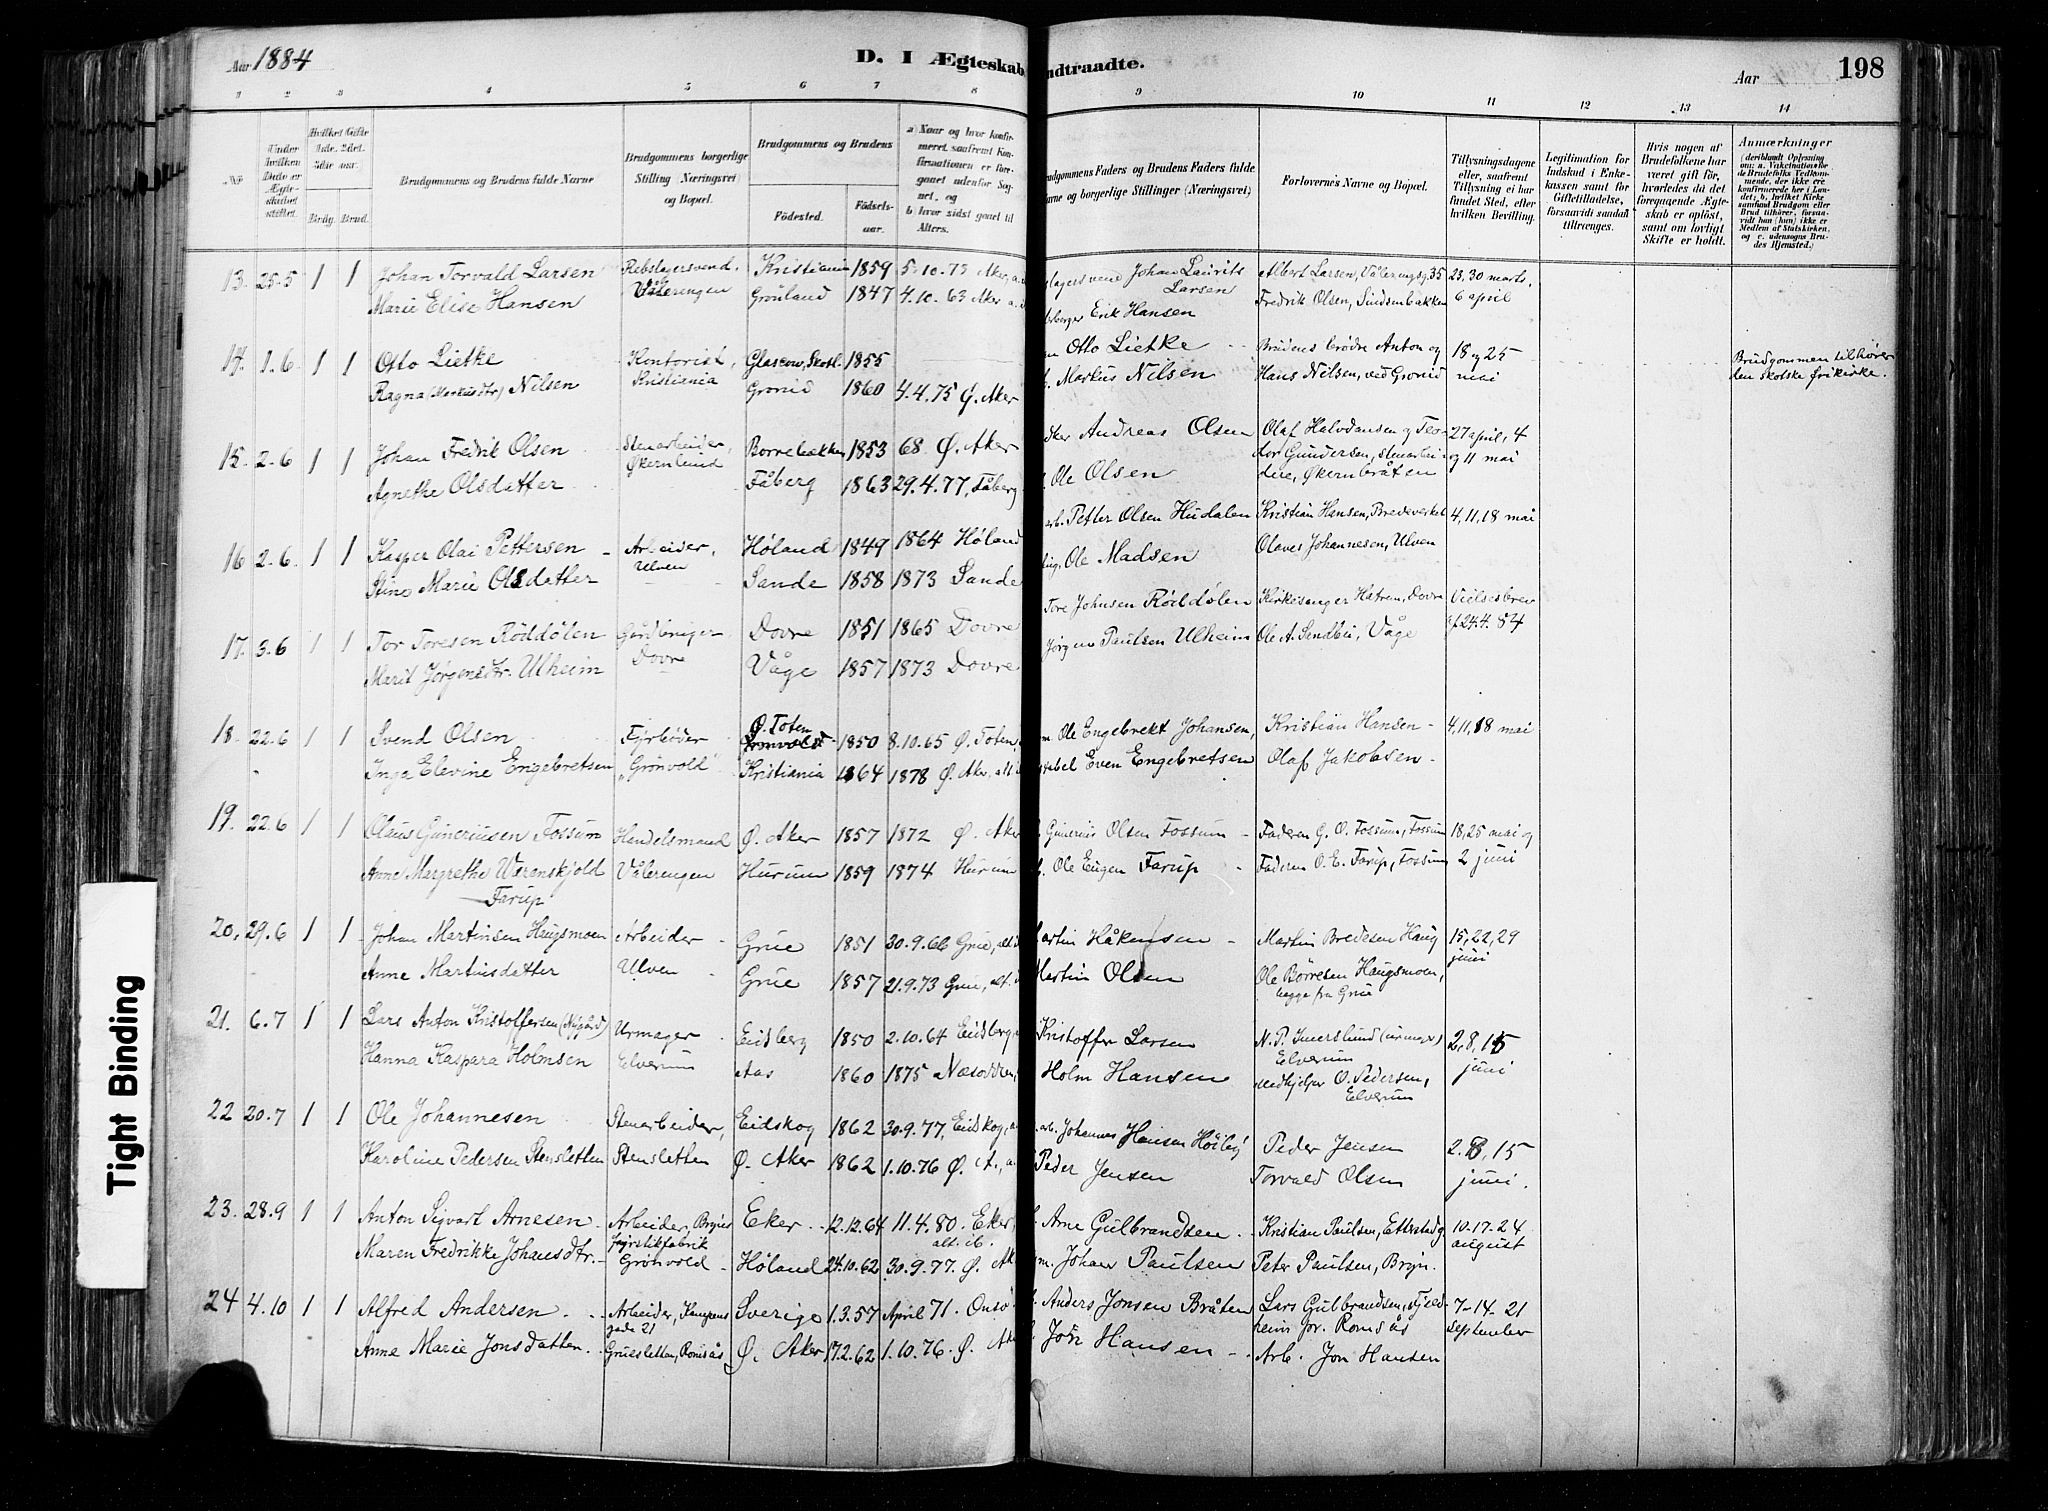 Aar 1884
D. I Ægteskab
ndtraadte.
Aar
198
1 2 3 4 5 6 7 8 9 10 11 12 13 14
No
Under hvilken Dato er Ægteskabet stiftet.
Hvilket Gifte
Brudg. Brud.
Brudgommens og Brudens fulde Navne
Brudgommens borgerlige Stilling (Næringsvei) og Bopæl.
Brudgommens og Brudens
Fødested.
Fødselsaar.
a) Naar og hvor konfirmeret, samt om Konfirmationen er foregaaet udenfor Sognet, og
b) hvor sidst gaaet til Alters.
udgommens Faders og Brudens Faders fulde
avne og borgerlige Stillinger (Næringsvei)
Forlovernes Navne og Bopæl.
Tillysningsdagene eller, saafremt Tillysning ei har fundet Sted, efter hvilken Bevilling.
Legitimation for Indskud i Enkekassen samt for Giftetilladelse, forsaavidt saadan tiltrænges.
Hvis nogen af Brudefolkene har været gift før, hvorledes da det foregaaende Ægteskab er opløst, samt om lovligt Skifte er holdt.
Anmærkninger
13. 25.5 1 1 Johan Torvald Larsen Rebslagersvend, Kristiania 1859 5.10.73 Aker, slagersvend Johan Laurits Larsen Albert Larsen, Vålerengsg. 35 23, 30 marts,
Marie Elise Hansen Vålerengen Grønland 1847 4.10.63 Aker Erik Hansen Fredrik Olsen, Lindsenbakken 6 april
14. 1.6 1 1 Otto Lietke Kontorist, Glascow, Skotl. 1855 Otto Lietke Brudens brødre Anton og 18 og 25
Ragna (Markusdtr) Nilsen Kristiania Gronid 1860 4.4.75 Ø. Aker Markus Nilsen Hans Nilsen, ved Gronid mai
Brudgommen tilhører
den skotske frikirke.
15. 2.6 1 1 Johan Fredrik Olsen Stenarbeider, Borrebækken 1853 68 Ø. Aker Andreas Olsen Olaf Halvdansen og Teo- 27 april, 4
Agnethe Olsdatter Økernlund Fåberg 1863 29.4.77, Fåberg Ole Olsen dor Gundersen, stenarbei- og 11 mai
dere, Økernbråten
16 2.6 1 1 Kasper Olai Pettersen Arbeider, Høland 1849 1864 Høland arb. Petter Olsen Hudalen Kristian Hansen, Bredeverket 4, 11, 18 mai
Stine Marie Olsdatter Ulven Sande 1858 1873 Sande Ole Madsen Olaves Johannesen, Ulven
17. 3.6 1 1 Tor Toresen Röddölen Gårdbruger Dovre 1851 1865 Dovre Tore Johnsen Röddölen Kirkesanger Hatrem, Dovre Vielsesbrev
Marit Jørgensdtr. Ulheim Dovre Våge 1857 1873 Dovre Jørgen Paulsen Ulheim Ole A. Sandbu, Våge af 24.4.84
18. 22.6 1 1 Svend Olsen Fyrbøder Ø. Toten 1850 8.10.65 Ø. Toten, Ole Engebrekt Johansen, Kristian Hansen 4, 11, 18 mai
Inga Elevine Engebretsen "Grönvold" Kristiania 1864 1878 Ø. Aker, Even Engebretsen Olaf Jakobsen
19. 22.6 1 1 Olaus Guneriusen Fossum Handelsmand Ø. Aker 1857 1872 Ø. Aker Gunerius Olsen Fossum Faderen G. O. Fossum, Fossum 18, 25 mai og
Anne Margrethe Werenskjold Farup Vålerengen Hurum 1859 1874 Hurum Ole Eugen Farup Faderen O. E. Farup, Fossum 2 juni
20. 29.6 1 1 Johan Martinsen Haugsmoen Arbeider Grue 1851 30.9.66 Grue, Martin Håkensen Martin Bredesen Haug 15, 22, 29
Anne Martinsdatter Ulven Grue 1857 21.9.73 Grue, Martin Olsen Ole Børresen Haugsmoen, juni
begge fra Grue
21. 6.7 1 1 Lars Anton Kristoffersen (Nygård) Urmager Eidsberg 1850 2.10.64 Eidsberg, Kristoffer Larsen N. P. Imerslund (urmager) 2, 8, 15
Hanna Kaspara Holmsen Elverum Aas 1860 1875 Næsodden, Holm Hansen Elverum juni
Medhjelper O. Pedersen,
Elverum
22 20.7 1 1 Ole Johannesen Stenarbeider, Eidskog 1862 30.9.77, Eidskog, arb. Johannes Hansen Høiby Peder Jensen 2. 8, 15
Karoline Pedersen Stensletten Stensletten Ø. Aker 1862 1.10.76 Ø. A., Peder Jensen Torvald Olsen juni.
23. 28.9 1 1 Anton Sigvart Arnesen Arbeider, Bryns Eker 12.12.64 11.4.80. Eker, alt. ib. Arne Gulbrandsen Kristian Paulsen, Etterstadg. 10-17-24
Maren Fredrikke Johansdtr. fyrstikfabrik Grönvold Høland 24.10.62 30.9.77. Ø. Ak Johan Paulsen Peter Paulsen, Bryn. august
24 4.10 1 1 Alfred Andersen Arbeider, Kampens gade 21 Sverige 1.3.57 April 71. Onsø Anders Jonsen Bråten Lars Gulbrandsen, Fjeld- 7-14-21
heim pr. Romsås september
Anne Marie Jonsdatter Gruesletten, Romsås Ø. Aker 17.2.62 1.10.76. Ø. Aker Jon Hansen Arb. Jon Hansen
Tight Binding